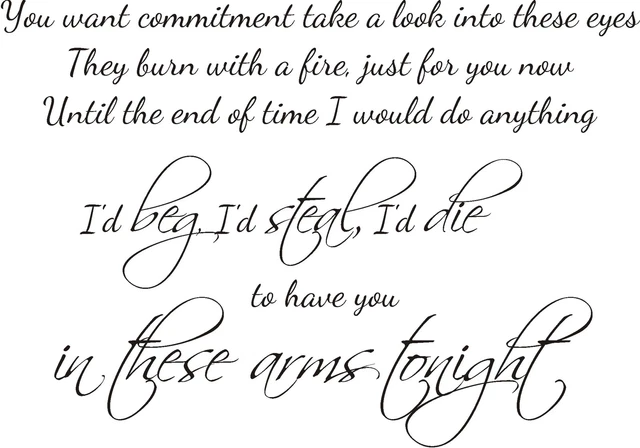 You want commitment take a look into these eyes
They burn with a fire, just for you now
Until the end of time I would do anything
I'd beg, I'd steal, I'd die
to have you
in these arms tonight